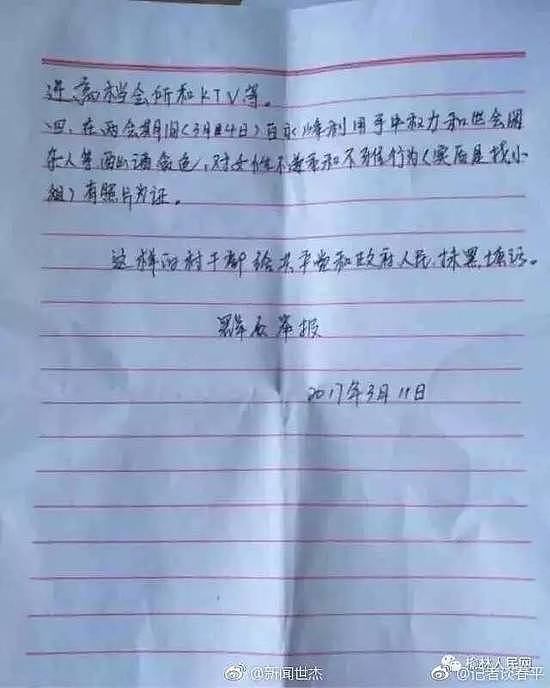 进高档会所和KTV等。
四、在两会期间(3月4日)白永峰利用手中权力和社会闲
杂人等酗酒贪色,对女性不尊重和不负责行为(实后是找小
姐)有照片为证。
这样的村干部给共产党和政府人民抹黑,填污。
举报
2017年3月11日
@新闻世杰
榆林人民网
@记者谈春平